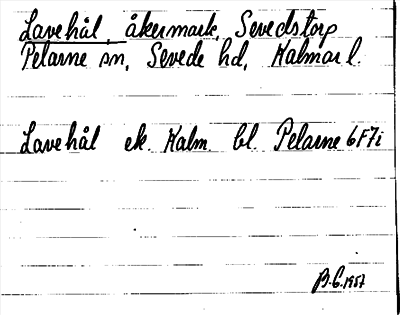 Lavehål, åkermark, Sevedstorp
Pelarne sn, Sevede hd, Kalmar l.
Lavehål ek. Kalm. bl. Pelarne 6F7i
B.G. 1957